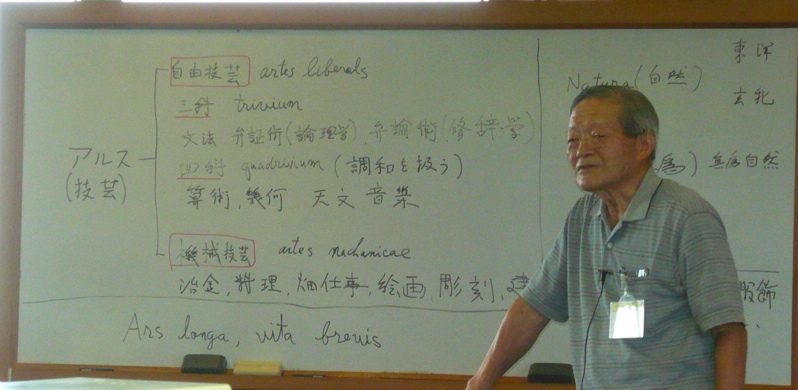 自由技芸 artes liberals
三科 trivium
文法 弁証術(論理学), 弁論術(修辞学)
四科 quadrivium (調和を扱う)
算術, 幾何 天文 音楽
アルス
(技芸)
機械技芸 artes machanicae
冶金, 料理, 畑仕事, 絵画, 彫刻, 建
服飾
Ars longa, vita brevis
東洋
Natura(自然)
為) 無為自然